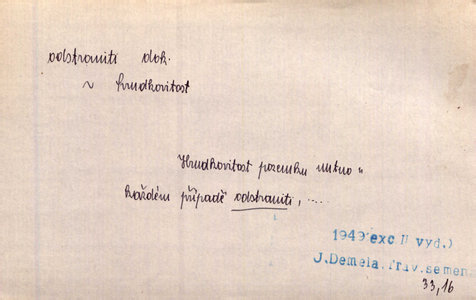 odstraniti dok.
~ hrudkovitost
Hrudkovitost pozemku nutno v
každém případě odstraniti, .....
1949 exc II vyd.)
J. Demela, Trav. semen
33,16